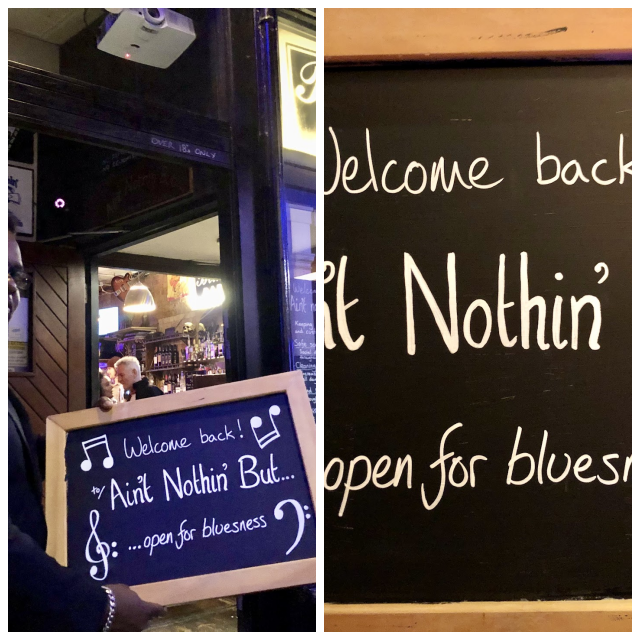 OVER 18s ONLY
Welcome back!
to/ Ain't Nothin' But...
...open for bluesness
Welcome back
n't Nothin'
open for bluesn